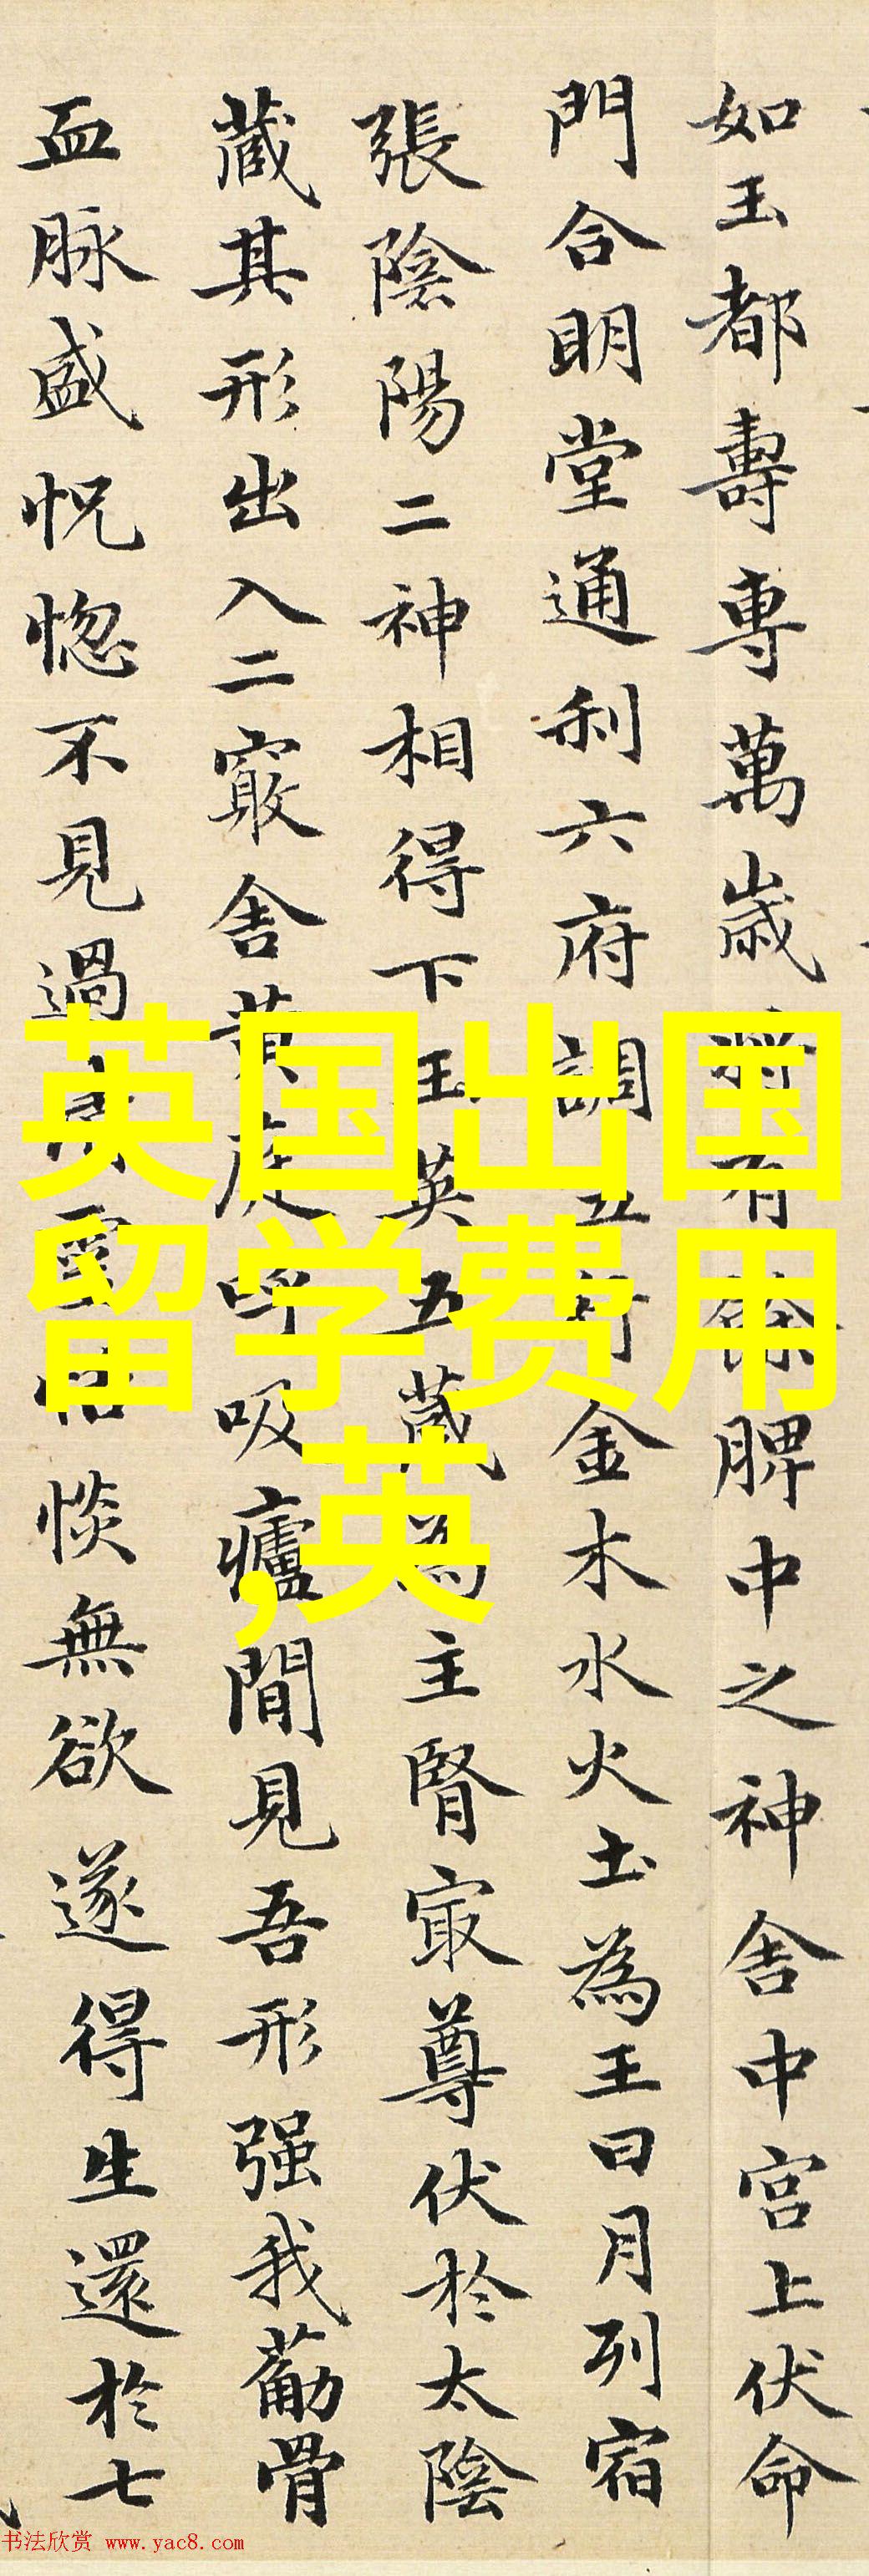 如玉都壽專萬歲將有餘脾中之神舍中宮上伏命
門合明堂通利六府調五行金木水火土為王日月列宿
張陰陽二神相得下玉英五藏為主腎寂尊伏於太陰
藏其形出入二竅舍黃庭呼吸廬間見吾形强我葡骨
血脉盛怳惚不見過清靈恬惔無欲遂得生還於七
英国出国
留学费用
,英
书法欣赏 www.yac8.com